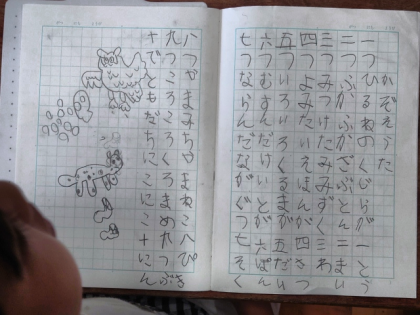 かぞえうた
一つひるねのくじらが一とう
二つふかふかざぶとんが二まい
三つ
四つよみたいまんが四さつ
五ついろいろくるまが五だい
六つ
七つならんだながぐつ七そく
八つやまみちやまねこ八ぴき
九つころころくろまめ九つぶ
十でともだちにこにこ十にん